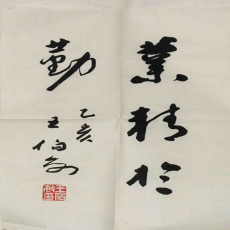 業精於
勤
乙亥
王伯敏